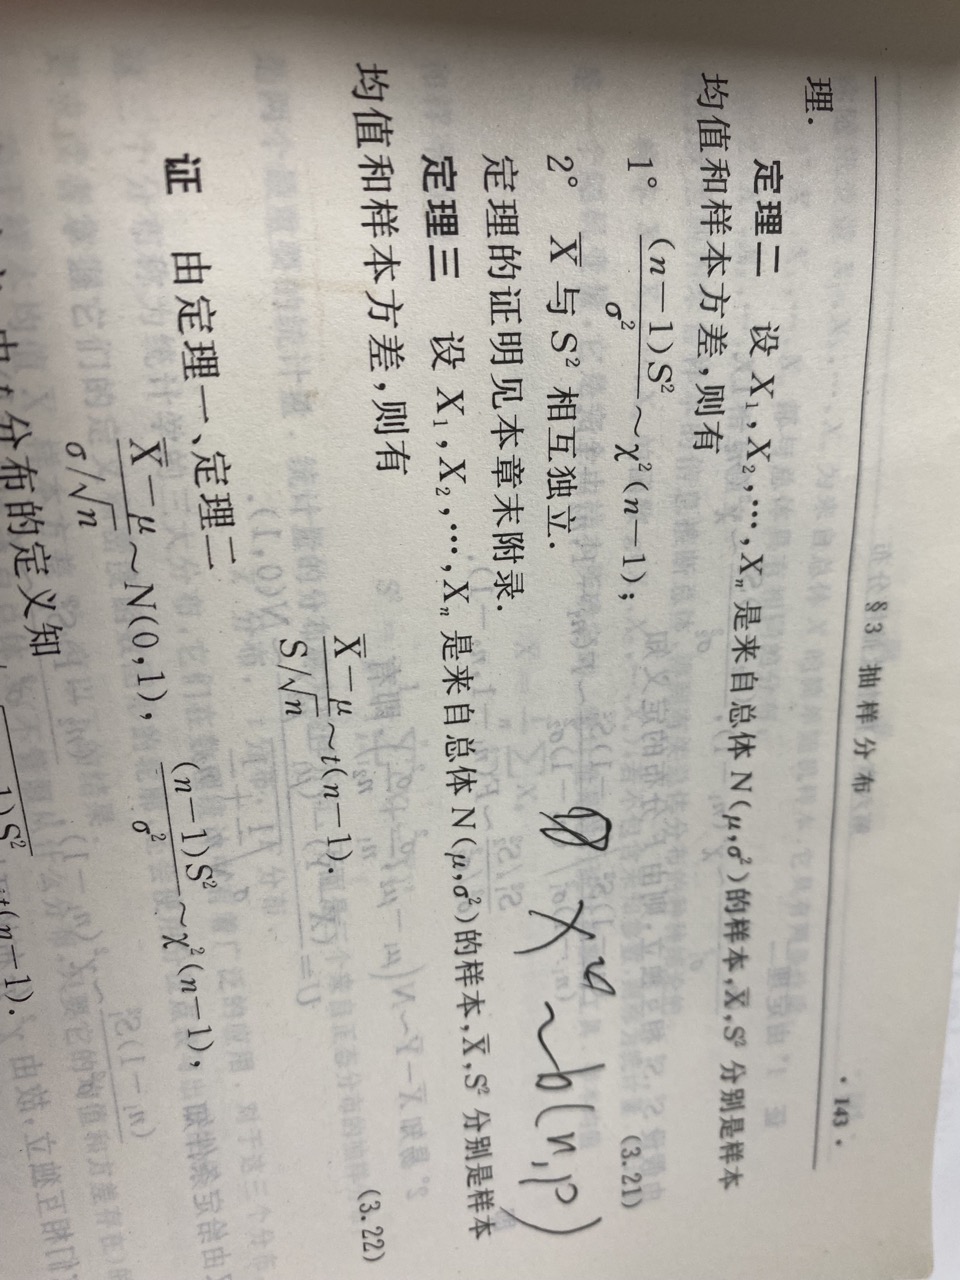 §3 抽样分布 · 143 ·
理.
定理二 设 X₁,X₂,…,Xₙ 是来自总体 N(μ,σ²)的样本,X̄,S² 分别是样本
均值和样本方差,则有
1° (n−1)S²/σ² ~ χ²(n−1); (3.21)
2° X̄ 与 S² 相互独立.
定理的证明见本章末附录.
~b(n,p)
定理三 设 X₁,X₂,…,Xₙ 是来自总体 N(μ,σ²)的样本,X̄,S² 分别是样本
均值和样本方差,则有
(X̄−μ)/(S/√n) ~ t(n−1). (3.22)
证 由定理一、定理二
(X̄−μ)/(σ/√n) ~ N(0,1), (n−1)S²/σ² ~ χ²(n−1),
分布的定义知